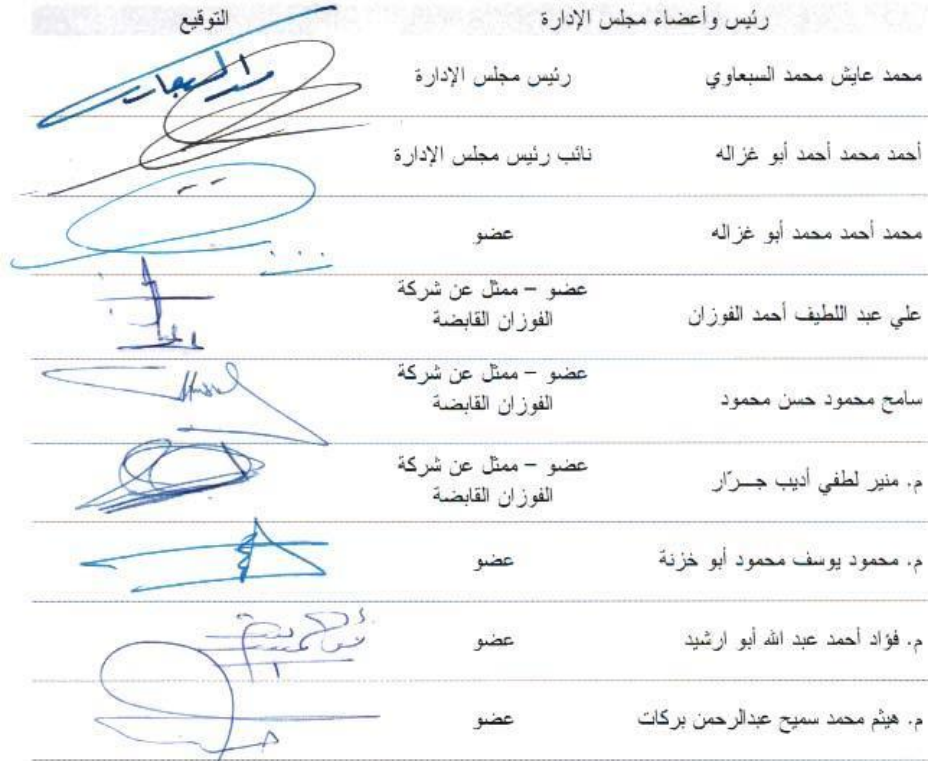 رئيس وأعضاء مجلس الإدارة التوقيع
محمد عايش محمد السبعاوي رئيس مجلس الإدارة
أحمد محمد أحمد أبو غزاله نائب رئيس مجلس الإدارة
محمد أحمد محمد أبو غزاله عضو
علي عبد اللطيف أحمد الفوزان عضو – ممثل عن شركة
الفوزان القابضة
سامح محمود حسن محمود عضو – ممثل عن شركة
الفوزان القابضة
م. منير لطفي أديب جــرّار عضو – ممثل عن شركة
الفوزان القابضة
م. محمود يوسف محمود أبو خزنة عضو
م. فؤاد أحمد عبد الله أبو ارشيد عضو
م. هيثم محمد سميح عبدالرحمن بركات عضو